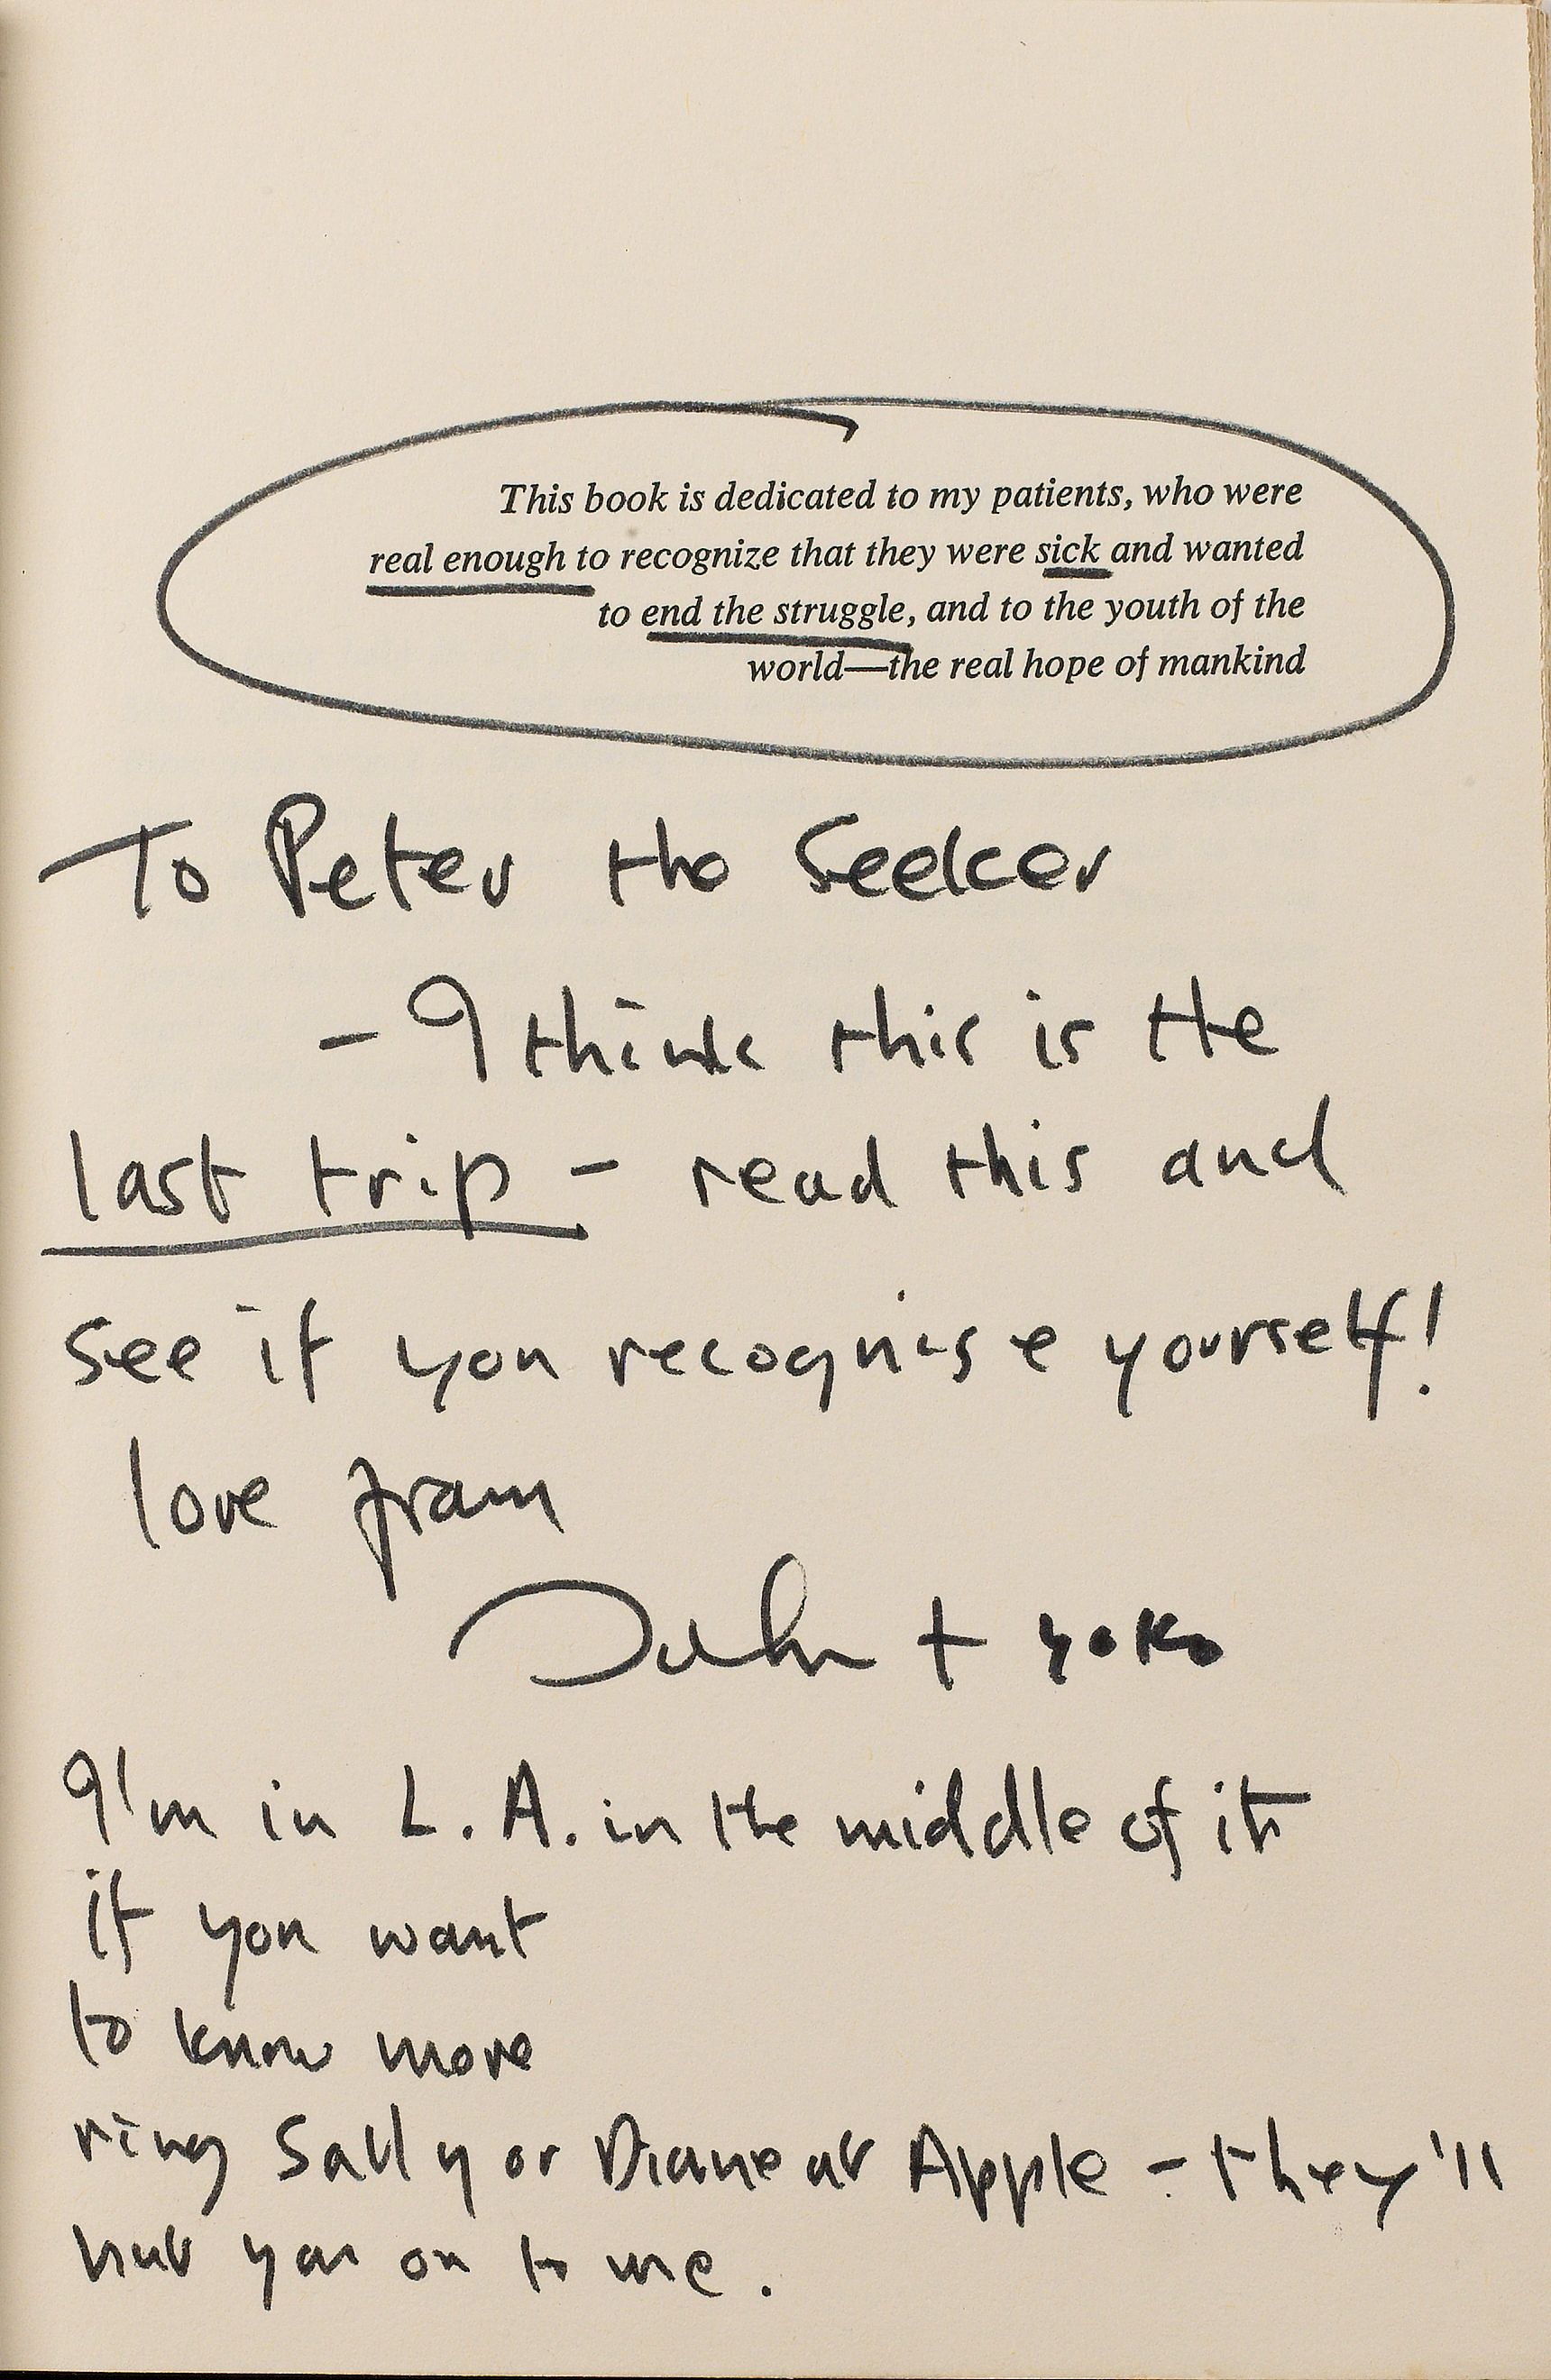 This book is dedicated to my patients, who were
real enough to recognize that they were sick and wanted
to end the struggle, and to the youth of the
world—the real hope of mankind
To Peter the Seeker
- I think this is the
last trip - read this and
see if you recognise yourself!
love from
John + Yoko
I'm in L.A. in the middle of it
if you want
to know more
ring Sally or Diane at Apple - they'll
put you on to me.